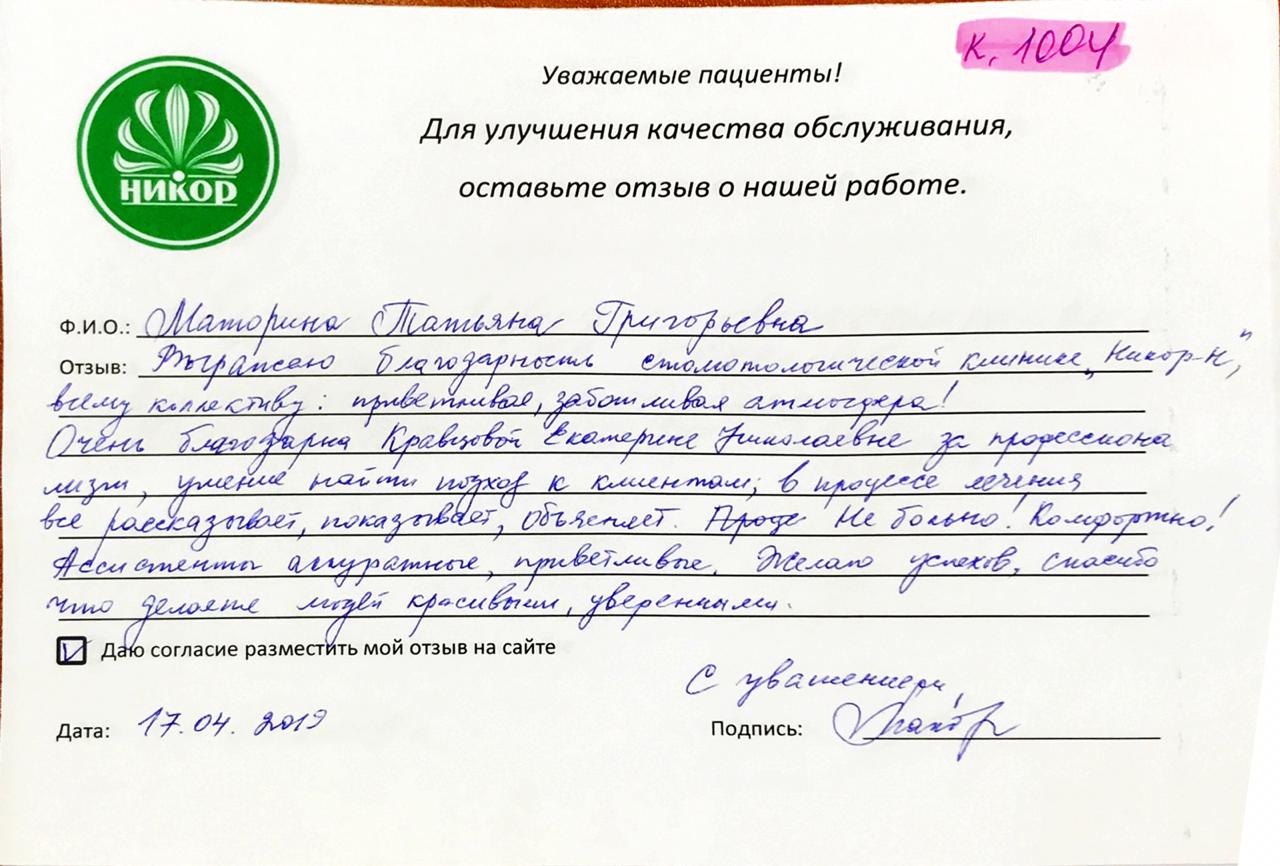 к. 1004
Уважаемые пациенты!
Для улучшения качества обслуживания,
оставьте отзыв о нашей работе.
НИКОР
Ф.И.О.: Маторина Татьяна Григорьевна
Отзыв: Выражаю благодарность стоматологической клинике „Никор-Н",
всему коллективу: приветливая, заботливая атмосфера!
Очень благодарна Кравцовой Екатерине Николаевне за профессиона
лизм, умение найти подход к клиентам; в процессе лечения
все рассказывает, показывает, объясняет. Проце Не больно! Комфортно!
Ассистенты аккуратные, приветливые. Желаю успехов, спасибо
что делаете людей красивыми, уверенными.
Даю согласие разместить мой отзыв на сайте
С уважением,
Дата: 17.04.2019
Подпись: